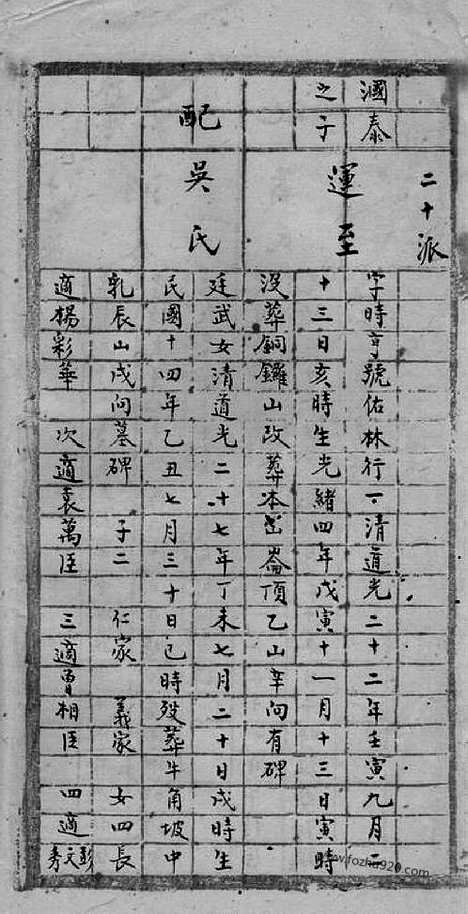 二十派
國泰
之子
運至
字時亨號佑林行一清道光二十二年壬寅九月二
十三日亥時生光緒四年戊寅十一月十三日寅時
沒葬銅鑼山改葬本邑崙頂乙山辛向有碑
配吳氏
廷武女清道光二十七年丁未七月二十日戌時生
民國十四年乙丑七月三十日巳時歿葬牛角坡中
乳辰山戌向墓碑 子二 仁家 義家 女四長
適楊彩華 次適袁萬臣 三適曾相臣 四適彭文秀
www.fozhu920.com